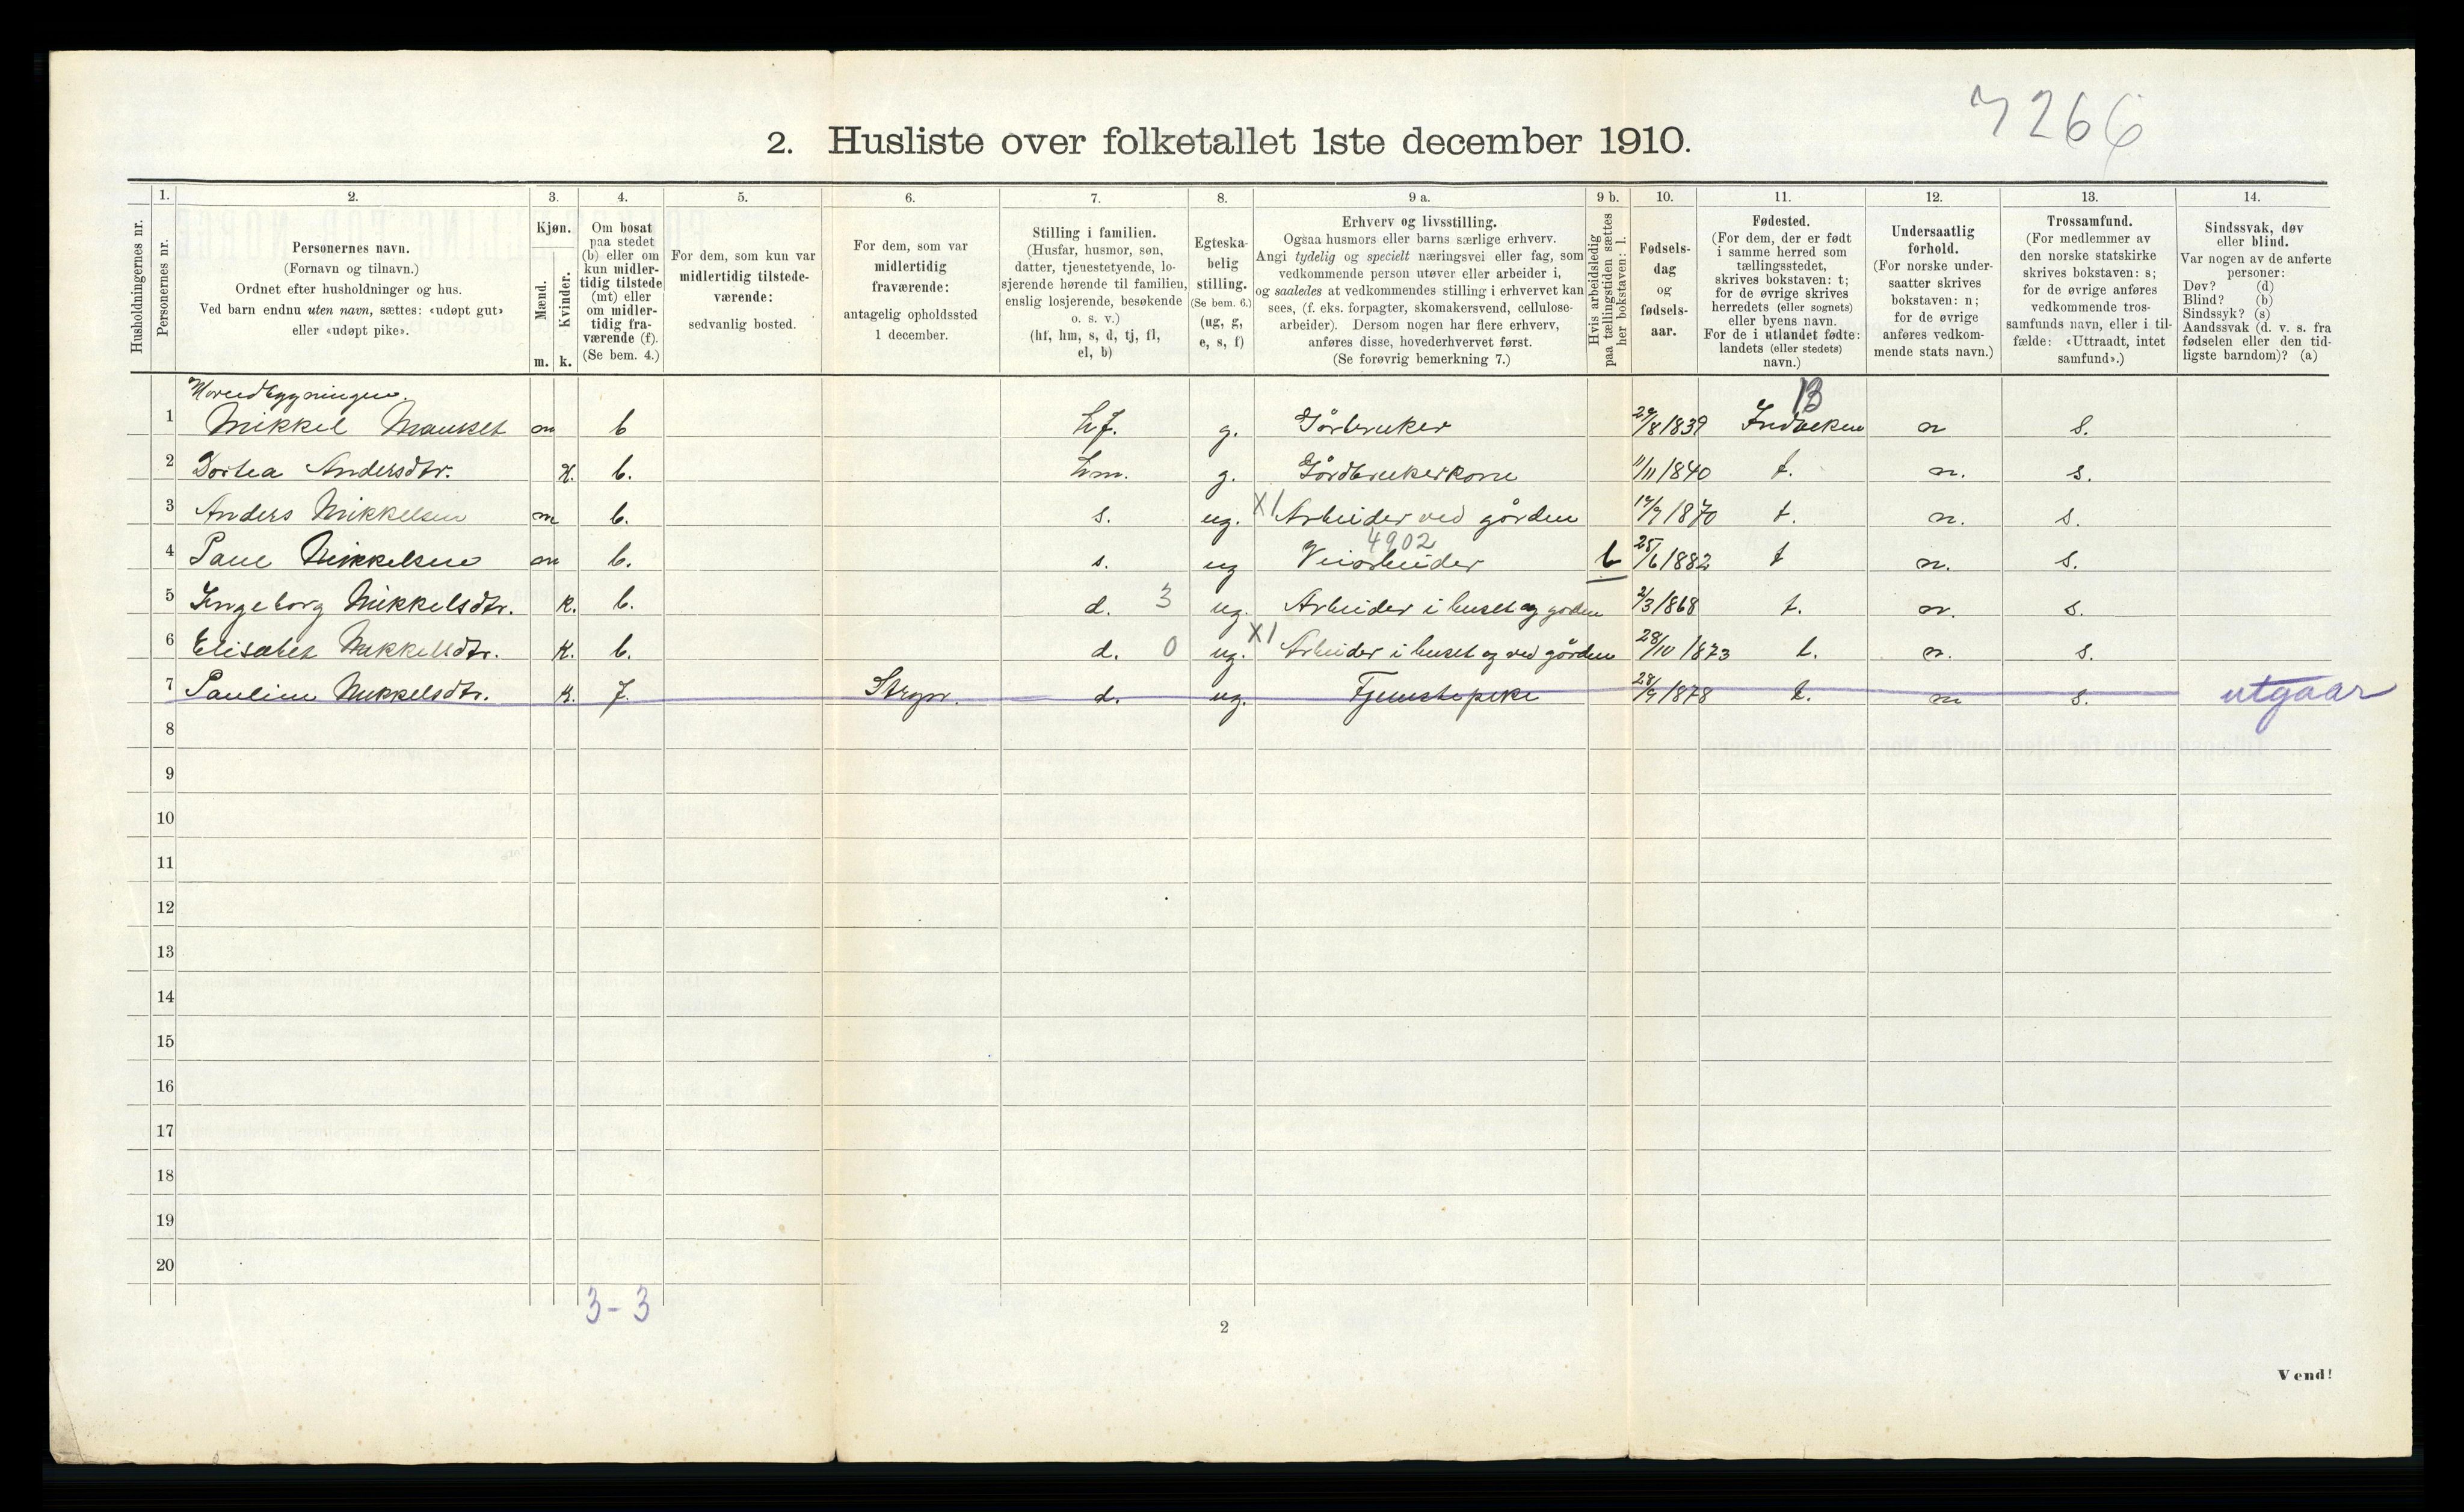 7266
2. Husliste over folketallet 1ste december 1910.
Husholdningernes nr.
1.
Personernes nr.
2.
Personernes navn.
(Fornavn og tilnavn.)
Ordnet efter husholdninger og hus.
Ved barn endnu uten navn, sættes: «udøpt gut»
eller «udøpt pike».
3.
Kjøn.
Mænd.
Kvinder.
m. k.
4.
Om bosat
paa stedet
(b) eller om
kun midler-
tidig tilstede
(mt) eller
om midler-
tidig fra-
værende (f).
(Se bem. 4.)
5.
For dem, som kun var
midlertidig tilstede-
værende:
sedvanlig bosted.
6.
For dem, som var
midlertidig
fraværende:
antagelig opholdssted
1 december.
7.
Stilling i familien.
(Husfar, husmor, søn,
datter, tjenestetyende, lo-
sjerende hørende til familien,
enslig losjerende, besøkende
o. s. v.)
(hf, hm, s, d, tj, fl,
el, b)
8.
Egteska-
belig
stilling.
(Se bem. 6.)
(ug, g,
e, s, f)
9 a.
Erhverv og livsstilling.
Ogsaa husmors eller barns særlige erhverv.
Angi tydelig og specielt næringsvei eller fag, som
vedkommende person utøver eller arbeider i,
og saaledes at vedkommendes stilling i erhvervet kan
sees, (f. eks. forpagter, skomakersvend, cellulose-
arbeider). Dersom nogen har flere erhverv,
anføres disse, hovederhvervet først.
(Se forøvrig bemerkning 7.)
9 b.
Hvis arbeidsledig
paa tællingstiden sættes
her bokstaven: l.
10.
Fødsels-
dag
og
fødsels-
aar.
11.
Fødested.
(For dem, der er født
i samme herred som
tællingsstedet,
skrives bokstaven: t;
for de øvrige skrives
herredets (eller sognets)
eller byens navn.
For de i utlandet fødte:
landets (eller stedets)
navn.)
12.
Undersaatlig
forhold.
(For norske under-
saatter skrives
bokstaven: n;
for de øvrige
anføres vedkom-
mende stats navn.)
13.
Trossamfund.
(For medlemmer av
den norske statskirke
skrives bokstaven: s;
for de øvrige anføres
vedkommende tros-
samfunds navn, eller i til-
fælde: «Uttraadt, intet
samfund».)
14.
Sindssvak, døv
eller blind.
Var nogen av de anførte
personer:
Døv? (d)
Blind? (b)
Sindssyk? (s)
Aandssvak (d. v. s. fra
fødselen eller den tid-
ligste barndom)? (a)
Hovedbygningen.
1 Mikkel Mauset m b hf. g. Gårbruker 29/8 1839 n s.
2 Dortea Andersdtr. k. b. hm. g. Gårdbrukerkone 11/11 1840 t. n. s.
3 Anders Mikkelsen m b. s. ug. X1 Arbeider ved gården 1870 t. n. s.
4902
4 Paul Mikkelsen m b. s. ug Veiarbeider l 25/6 1882 t n. s.
5 Ingeborg Mikkelsdtr. k. b. d. 3 ug. Arbeider i huset og gården 2/3 1868 t. n. s.
6 Elisabet Mikkelsdtr. k. b. d. 0 ug. X1 Arbeider i huset og ved gården 28/10 1873 t. n. s.
7 Pauline Mikkelsdtr. k. f. Stryn. d. ug. Tjenestepike 28/9 1878 t. n s. utgaar
8
9
10
11
12
13
14
15
16
17
18
19
20
3-3
2
Vend!